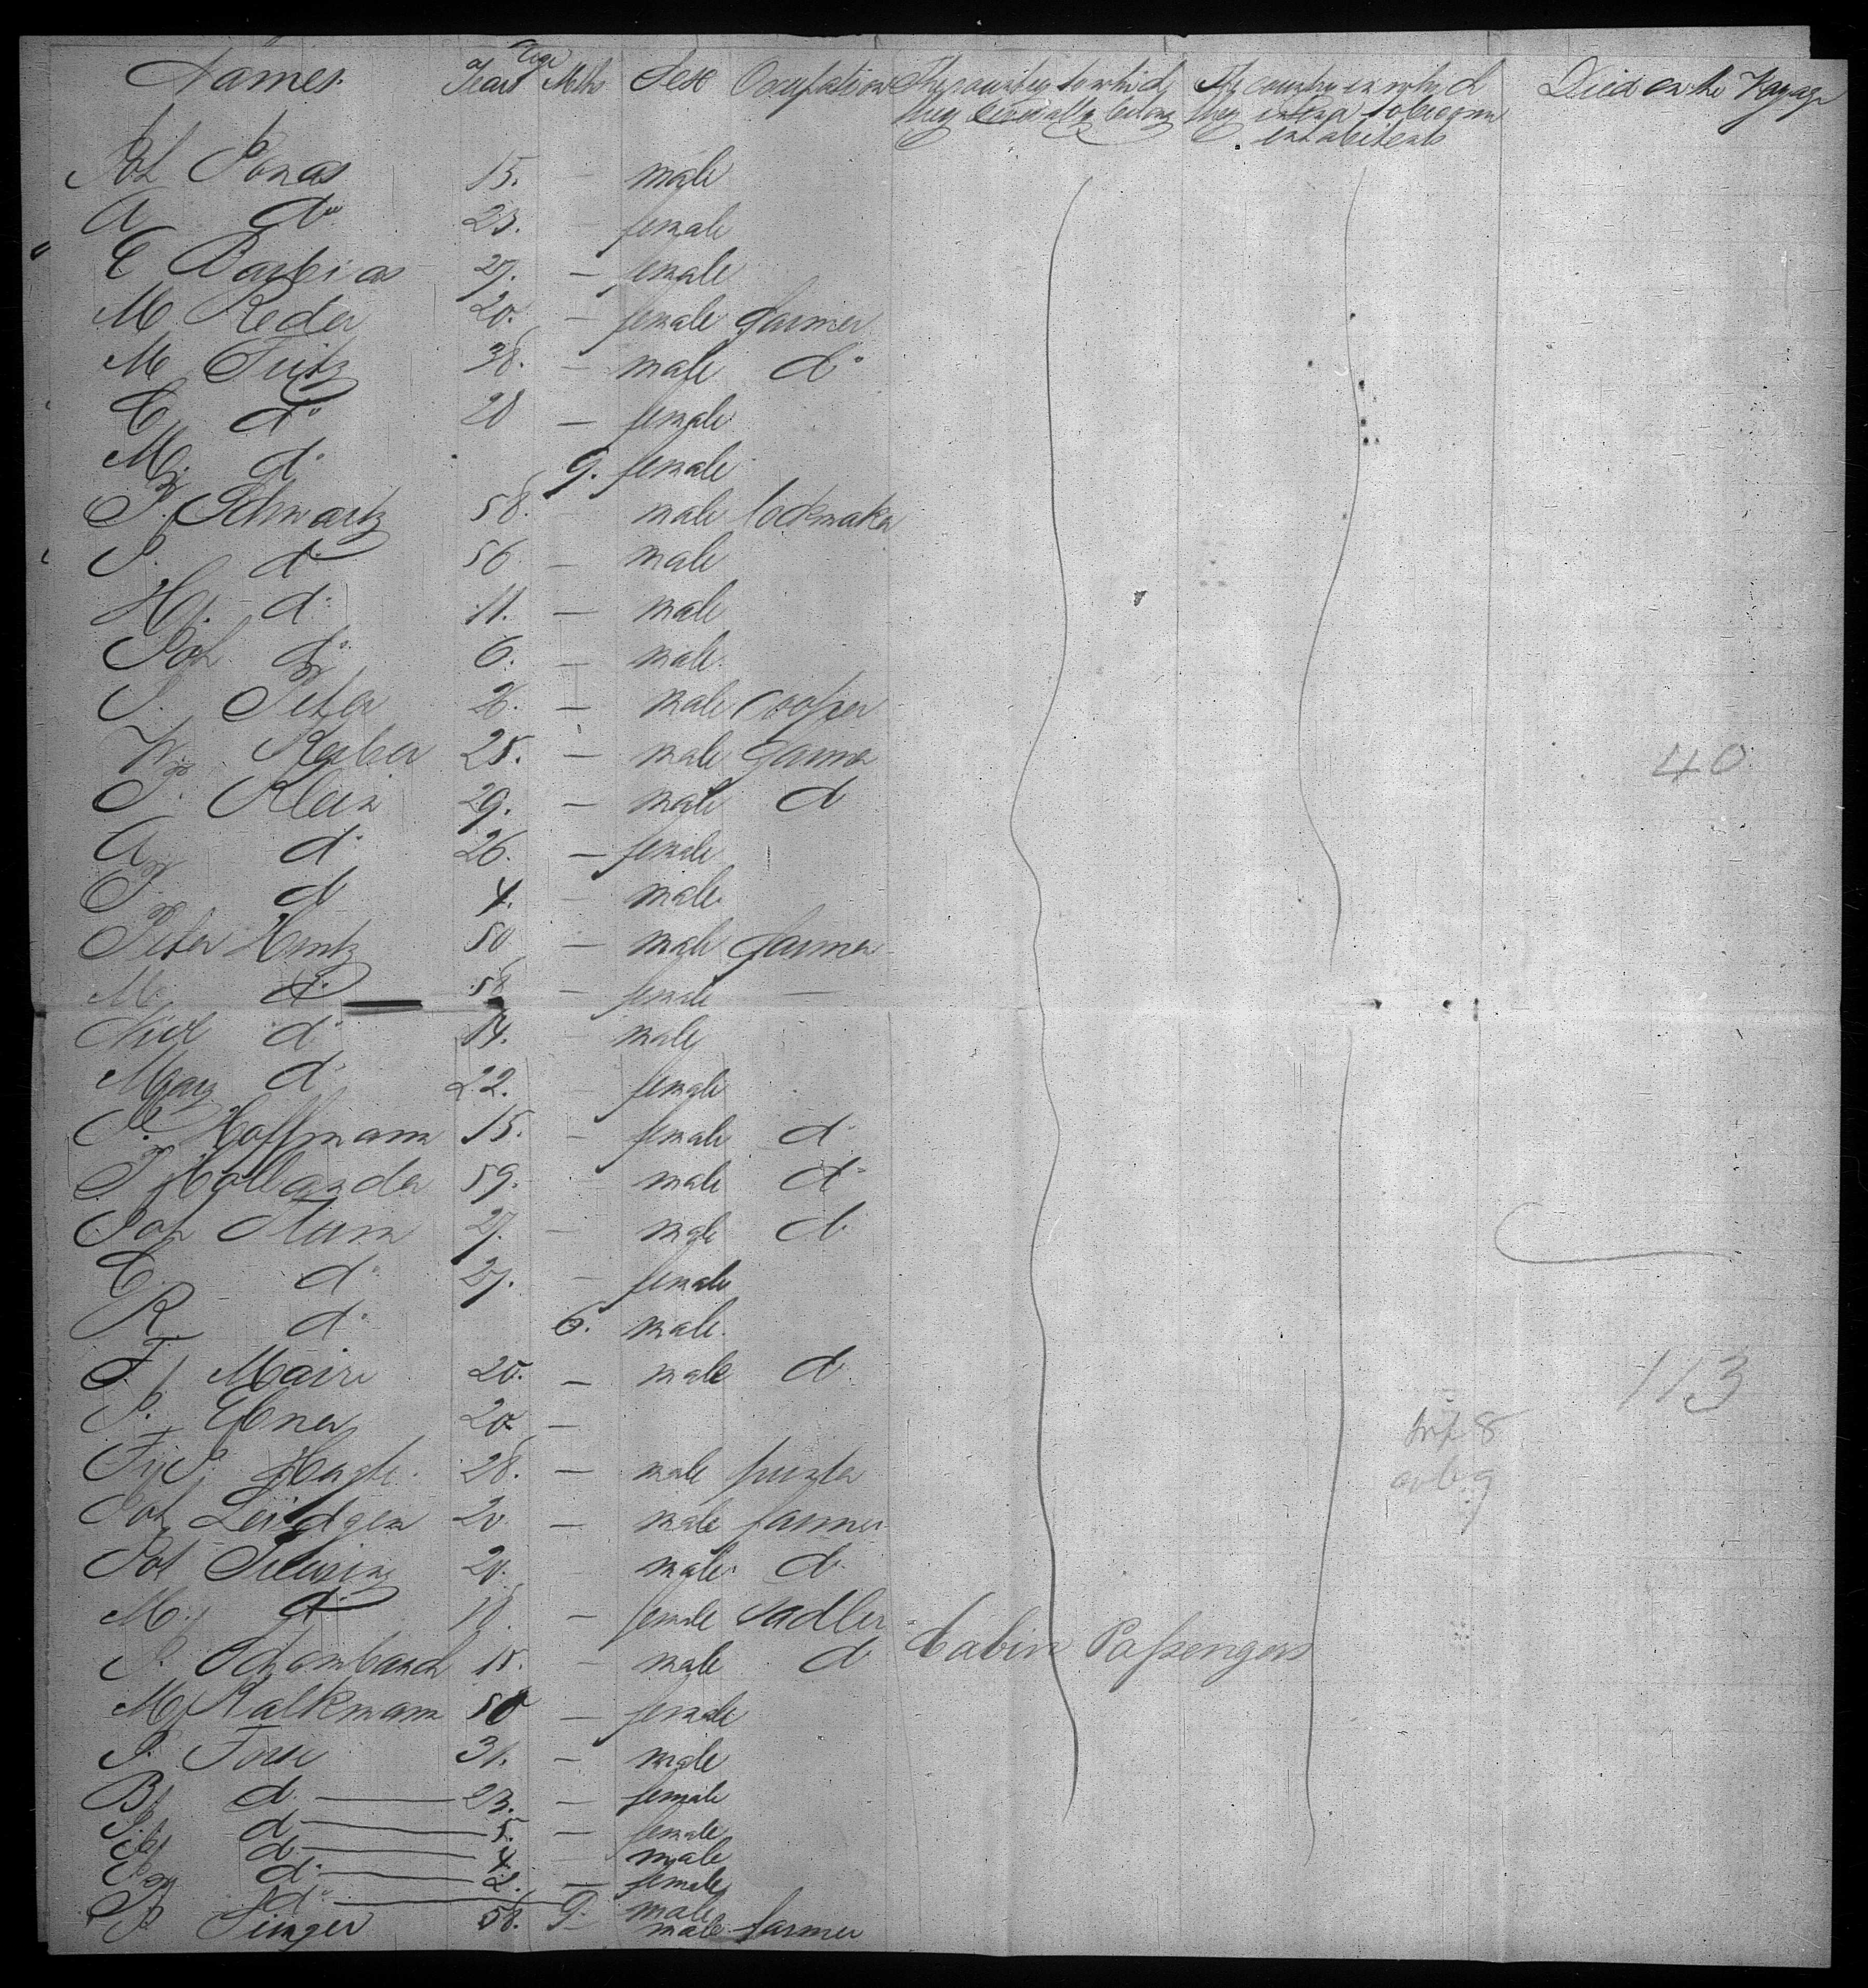 Names. Age Years Mths Sex Occupation The country to which they severally belong The country in which they intend to become inhabitants Died on the Voyage
Joh Jonas 15. — male
A do 23. — female
C Barbias 27. — female
M Reder 20. — female farmer
M Fritz 38. — male do
C. do 20 — female
M. do 9. female
P. Schwartz 58. male lockmaker
S. do 56. — male
H. do 11. — male
Joh. do 6. — male
J. Peter 26. — male cooper
W. Reber 25. — male farmer
P. Klein 29. — male do
A do 26. — female
P. do 4. — male
Peter Hentz 50 — male farmer
M. do 58 — female —
Nick do 14. male
Mary do 22. female
S. Hoffmann 15. — female do
P Hollander 59. — male do
Joh Stum 27. — male do
C. do 27. — female
R do 6. male
F. Maire 20. — male do
J. Ebner 20. —
Hagle 28. — male
Joh Leidgen 20. — male farmer
Joh 20. male do
M. do 18. — female sadler
J. Schambach 15. — male do Cabin Passengers
M Kalkmann 50 — female
J. 31. — male
B. do — 23. — female
do — 5. — female
do — 4 male
do — 2. — female
do — 9. male
P. Singer 58. — male farmer
40
113